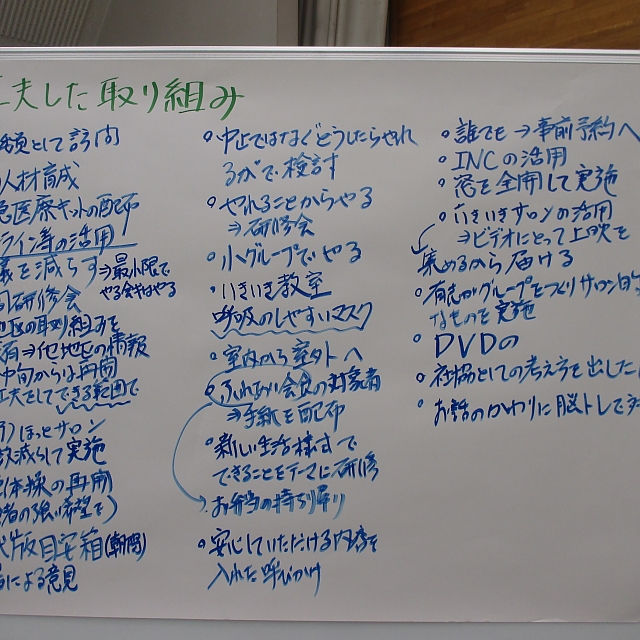 工夫した取り組み
類として訪問
人材育成
急医療キットの配布
ライン等の活用
議を減らす⇒最小限で
やる会はやる
同研修会
地区の取り組みを
有⇒他地区の情報
中旬からは再開
工夫をしてできる範囲で
ほっとサロン
数減らして実施
体操の再開
者の強い希望で)
版目安箱(朝間)
による意見
・中止ではなくどうしたらやれ
るかで検討
・やれることからやる
⇒研修会
・小グループでやる
・いきいき教室
呼吸のしやすいマスク
・室内から室外へ
・ふれあい会食の対象者
⇒手紙を配布
・新しい生活様式で
できることをテーマに研修
お弁当の持ち帰り
・安心していただける内容を
入れた呼びかけ
・誰でも→事前予約へ
・INCの活用
・窓を全開して実施
・いきいきサロンの活用
⇒ビデオにとって上映を
集めるから届ける
・有志がグループをつくりサロン的
なものを実施
・DVDの
・社協としての考え方を出した
・お話のかわりに脳トレで